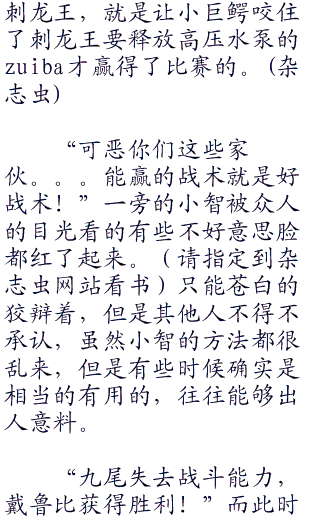 刺龙王，就是让小巨鳄咬住
了刺龙王要释放高压水泵的
zuiba才赢得了比赛的。(杂
志虫)
“可恶你们这些家
伙。。。能赢的战术就是好
战术！”一旁的小智被众人
的目光看的有些不好意思脸
都红了起来。（请指定到杂
志虫网站看书）只能苍白的
狡辩着，但是其他人不得不
承认，虽然小智的方法都很
乱来，但是有些时候确实是
相当的有用的，往往能够出
人意料。
“九尾失去战斗能力，
戴鲁比获得胜利！”而此时